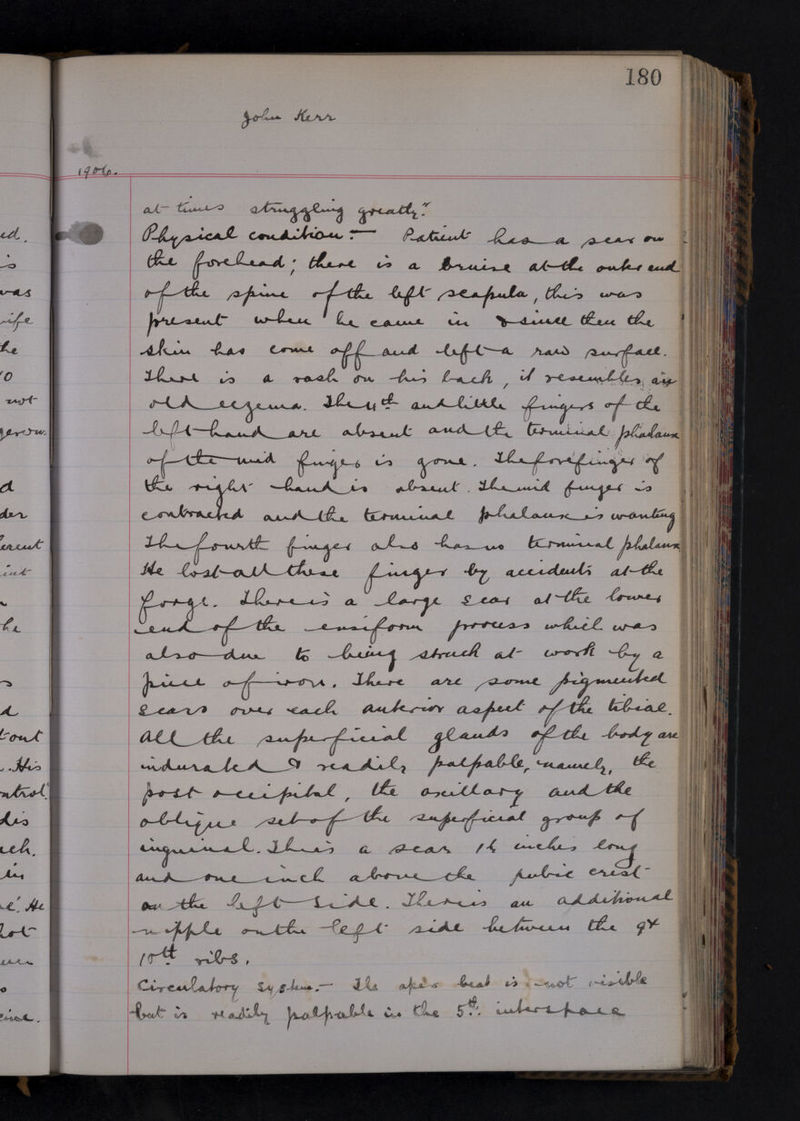 180
John Kerr
1906.
at times struggling greatly."
Physical condition:— Patient has a scar on
the forehead; there is a bruise at the outer end
of the spine of the left scapula, this was
present when he came in & since then the
skin has come off and left a raw surface.
There is a rash on his back, it resembles an
old eczema. The 4th and little fingers of the
left hand are absent and the terminal phalanx
of the mid finger is gone. The forefinger of
the right hand is absent. The mid finger is
contracted and the terminal phalanx is wanting
The fourth finger also has no terminal phalanx
He lost all these finger by accidents at the
forge. There is a large scar at the lower
end of the ensiform process which was
also due to being struck at work by a
piece of iron. There are some pigmented
scars over each anterior aspect of the tibiae.
All the superficial glands of the body are
indurated & readily palpable, namely, the
post occipital, the axillary and the
oblique set of the superficial group of
inguinal. There is a scar 1½ inches long
and one inch above the pubic crest
on the left side. There is an additional
nipple on the left side between the 9 &
10th ribs.
Circulatory System.— The apex beat is not visible
but is readily palpable in the 5th. interspace